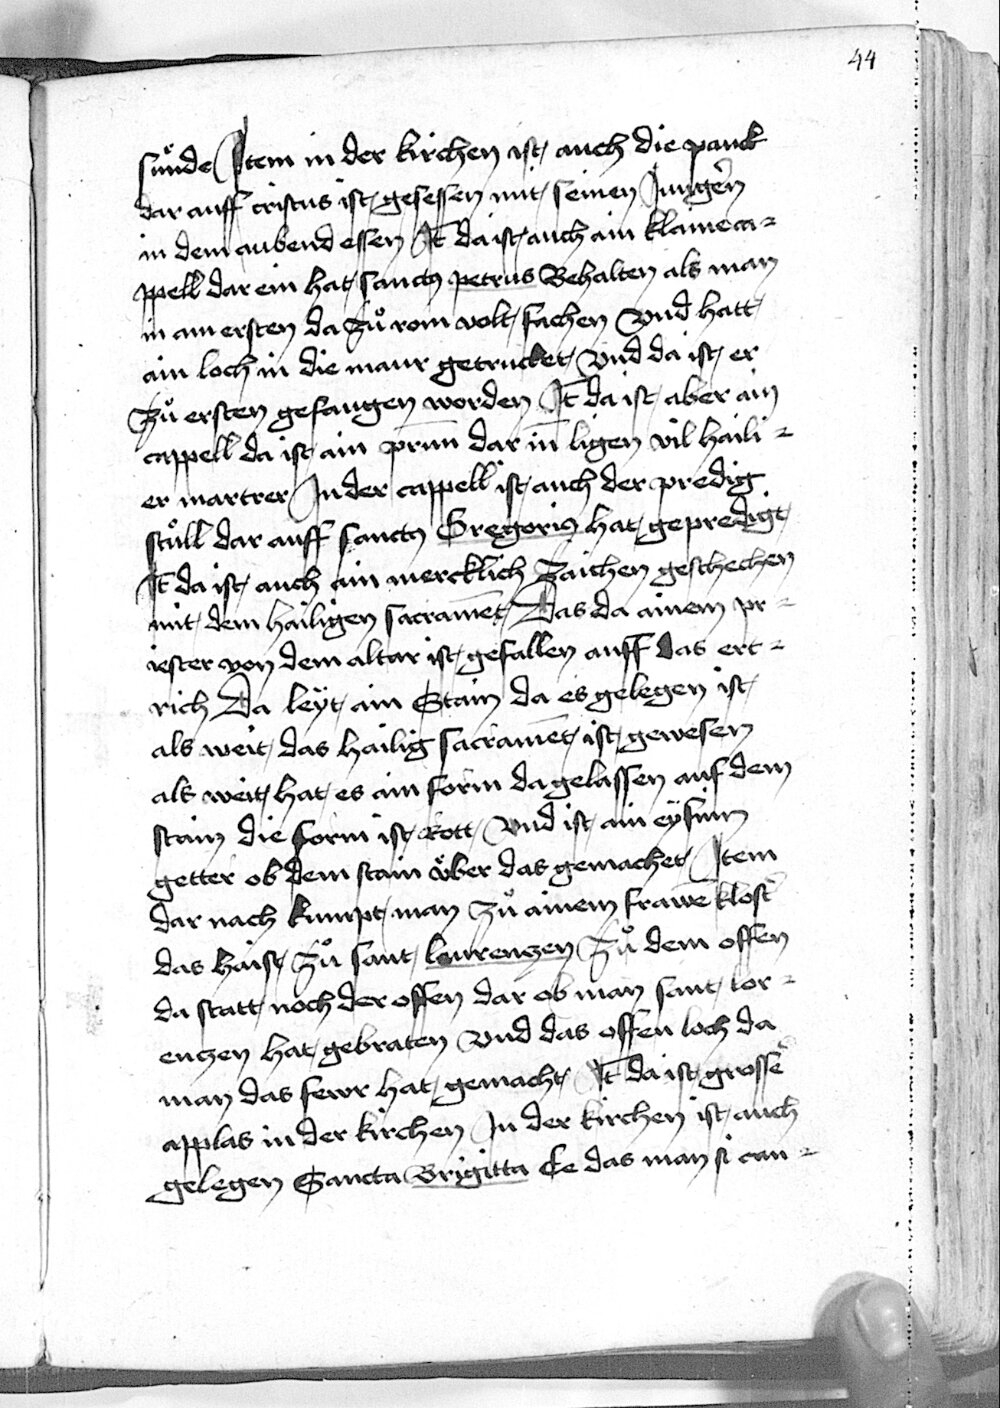 44
sünde Item in der kirchen ist auch die panck
dar auff cristus ist gesessen mit seinen Jungern̄
in dem aubend essen It̄ da ist auch ain klaine ca-
ppell dar ein hat sanctus petrus Behalten als man
in am ersten da zů rom wolt fachen Vnd hatt
ain loch in die maur getrucket Vnd da ist er
zů ersten gefangen worden It̄ da ist aber ain
cappell da ist ain prun̄ dar in̄ ligen vil haili-
er martrer In der cappell ist auch der predig
stůll dar auff sanctus Gregorius hat gepredigt
It̄ da ist auch ain mercklich zaichen geschechen
mit dem hailigen sacramēt Das da ainem pr-
iester von dem altar ist gefallen auff das ert-
rich Da leÿt ain Stain da es gelegen ist
als weit das hailig sacramēt ist gewesen
als weit hat es ain form da gelassen auf dem
stain die form ist Rott Vnd ist ain eÿsnin
getter ob dem stain vͤber das gemachet Item
dar nach kumpt man zů ainem frawē klost̄
das haist zů sant laurenczen zů dem offen
da statt noch der offen dar ob man sant lor-
enczen hat gebraten Vnd das offen loch da
man das fewr hat gemacht It̄ da ist grosse
applas in der kirchen In der kirchen ist auch
gelegen Sancta Brigitta Ee das man si can-